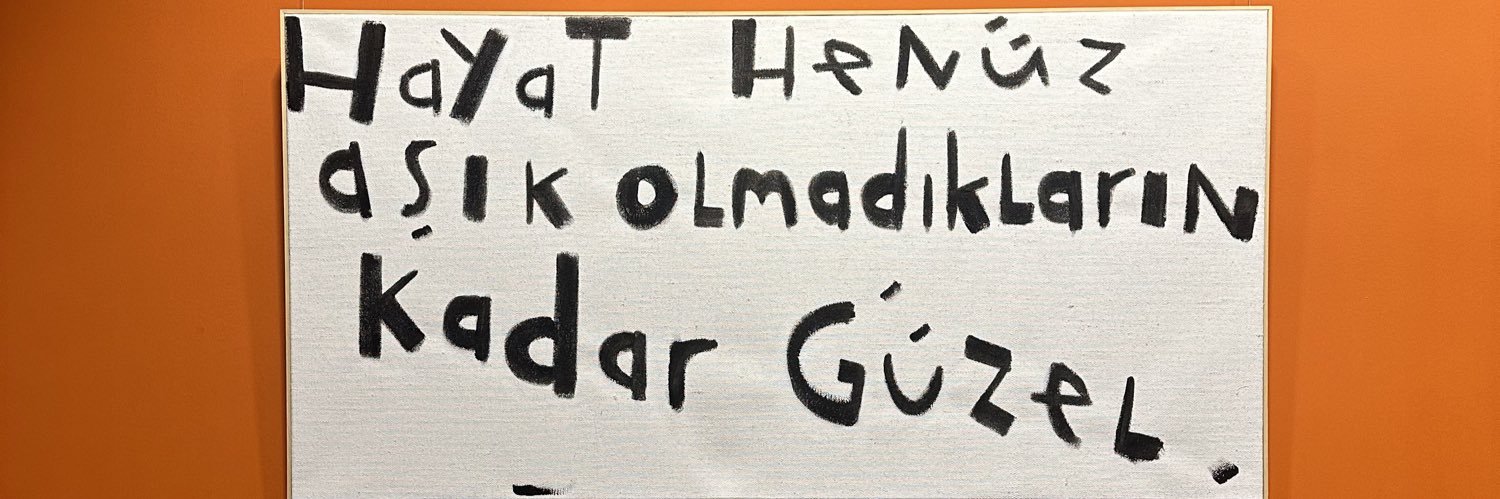 Hayat Henüz
aşık olmadıkların
kadar Güzel.